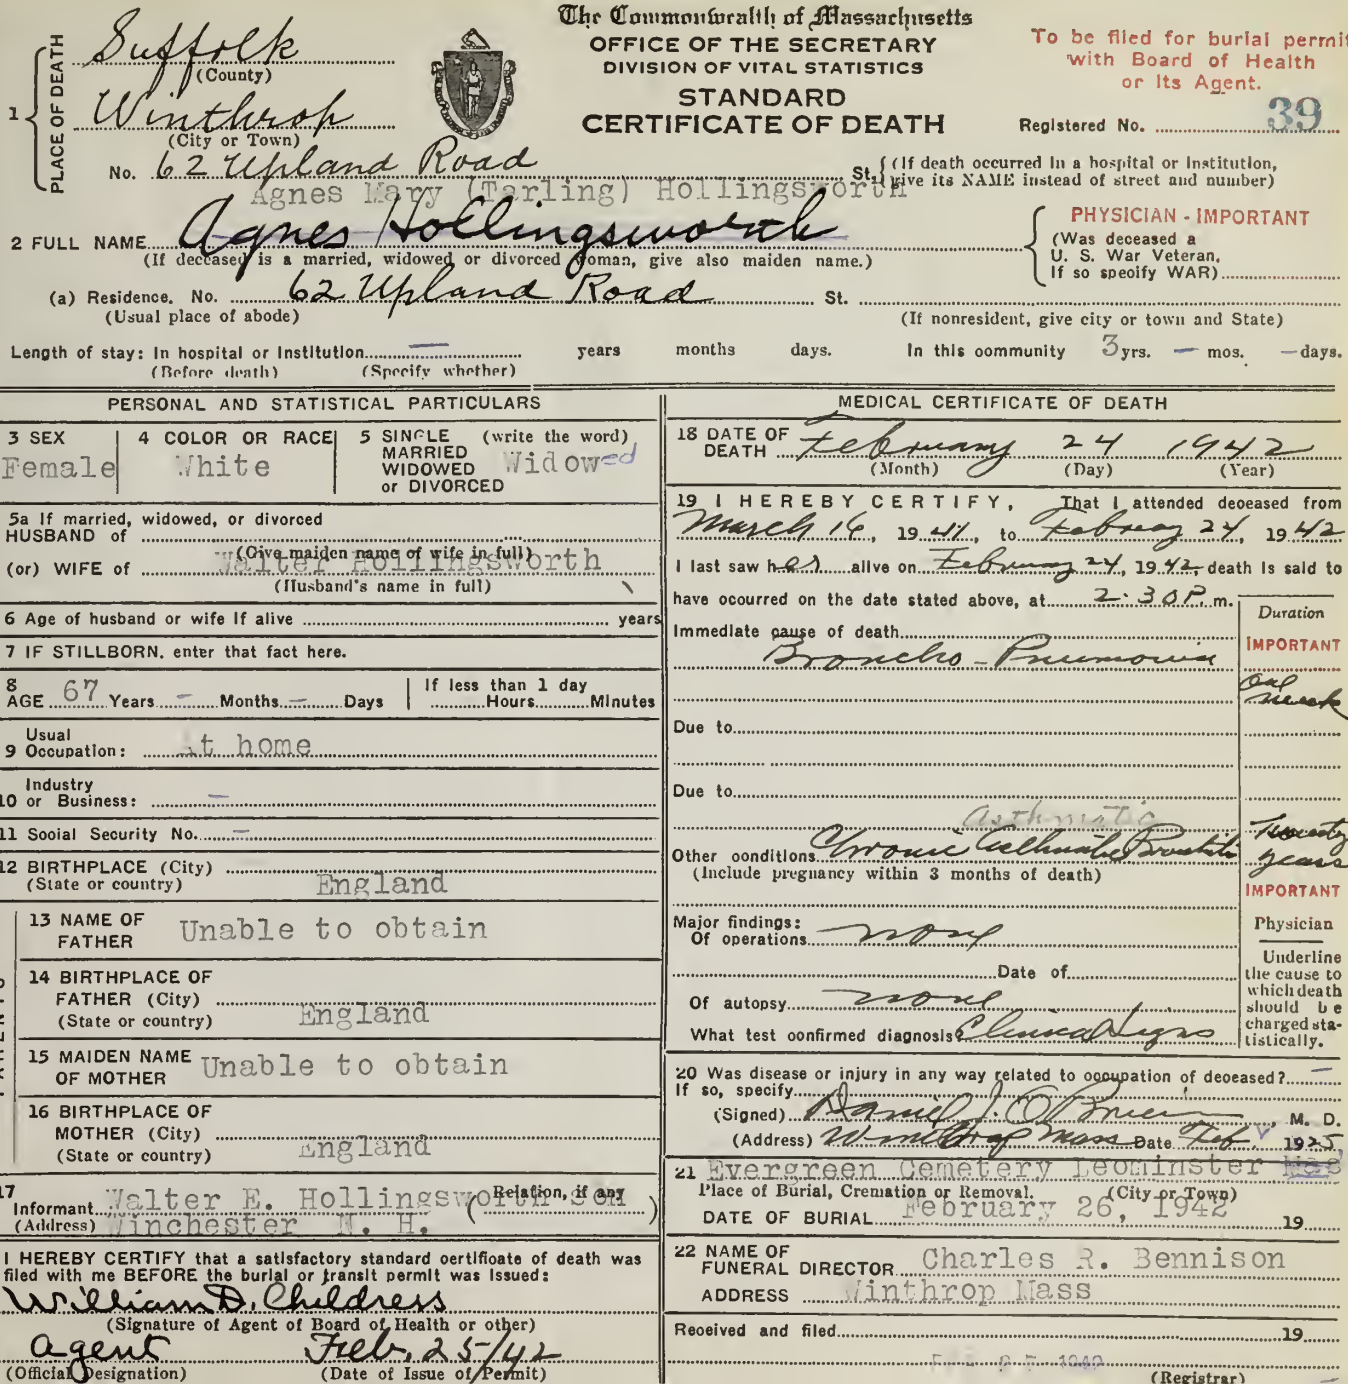 The Commonwealth of Massachusetts
OFFICE OF THE SECRETARY
DIVISION OF VITAL STATISTICS
STANDARD
CERTIFICATE OF DEATH
To be filed for burial permit
with Board of Health
or Its Agent.
Registered No. 39
1 PLACE OF DEATH
Suffolk
(County)
Winthrop
(City or Town)
No. 62 Upland Road St. (If death occurred in a hospital or institution,
give its NAME instead of street and number)
Agnes Mary (Tarling) Hollingsworth
2 FULL NAME Agnes Hollingsworth
(If deceased is a married, widowed or divorced woman, give also maiden name.)
PHYSICIAN - IMPORTANT
(Was deceased a
U. S. War Veteran,
If so specify WAR)
(a) Residence. No. 62 Upland Road St.
(Usual place of abode) (If nonresident, give city or town and State)
Length of stay: In hospital or Institution — years months days. In this community 3 yrs. — mos. — days.
(Before death) (Specify whether)
PERSONAL AND STATISTICAL PARTICULARS
3 SEX
Female
4 COLOR OR RACE
White
5 SINGLE (write the word)
MARRIED
WIDOWED Widowed
or DIVORCED
5a If married, widowed, or divorced
HUSBAND of
(Give maiden name of wife in full)
(or) WIFE of Walter Hollingsworth
(Husband's name in full)
6 Age of husband or wife if alive years
7 IF STILLBORN, enter that fact here.
8 AGE 67 Years — Months — Days If less than 1 day
Hours Minutes
Usual
9 Occupation: At home
Industry
10 or Business: —
11 Social Security No. —
12 BIRTHPLACE (City)
(State or country) England
PARENTS
13 NAME OF
FATHER Unable to obtain
14 BIRTHPLACE OF
FATHER (City)
(State or country) England
15 MAIDEN NAME
OF MOTHER Unable to obtain
16 BIRTHPLACE OF
MOTHER (City)
(State or country) England
17
Informant Walter E. Hollingsworth (Relation, if any son)
(Address) Winchester N. H.
I HEREBY CERTIFY that a satisfactory standard certificate of death was
filed with me BEFORE the burial or transit permit was issued:
William D. Childress
(Signature of Agent of Board of Health or other)
Agent Feb. 25/42
(Official Designation) (Date of Issue of Permit)
MEDICAL CERTIFICATE OF DEATH
18 DATE OF
DEATH February 24 1942
(Month) (Day) (Year)
19 I HEREBY CERTIFY, That I attended deceased from
March 16, 1941, to February 24, 1942
I last saw her alive on February 24, 1942, death is said to
have occurred on the date stated above, at 2:30 P. m.
Duration
Immediate cause of death
IMPORTANT
Broncho-Pneumonia
one
week
Due to
Due to
Asthmatic
Other conditions Chronic Asthmatic Bronchitis
Twenty
years
(Include pregnancy within 3 months of death)
IMPORTANT
Major findings:
Of operations none
Date of
Of autopsy none
What test confirmed diagnosis? Clinical Signs
Physician
Underline
the cause to
which death
should be
charged sta-
tistically.
20 Was disease or injury in any way related to occupation of deceased? —
If so, specify
(Signed) Daniel J. O'Brien, M. D.
(Address) Winthrop Mass Date Feb. 1925
21 Evergreen Cemetery Leominster Mas
Place of Burial, Cremation or Removal. (City or Town)
DATE OF BURIAL February 26, 1942 19
22 NAME OF
FUNERAL DIRECTOR Charles R. Bennison
ADDRESS Winthrop Mass
Received and filed 19
(Registrar)